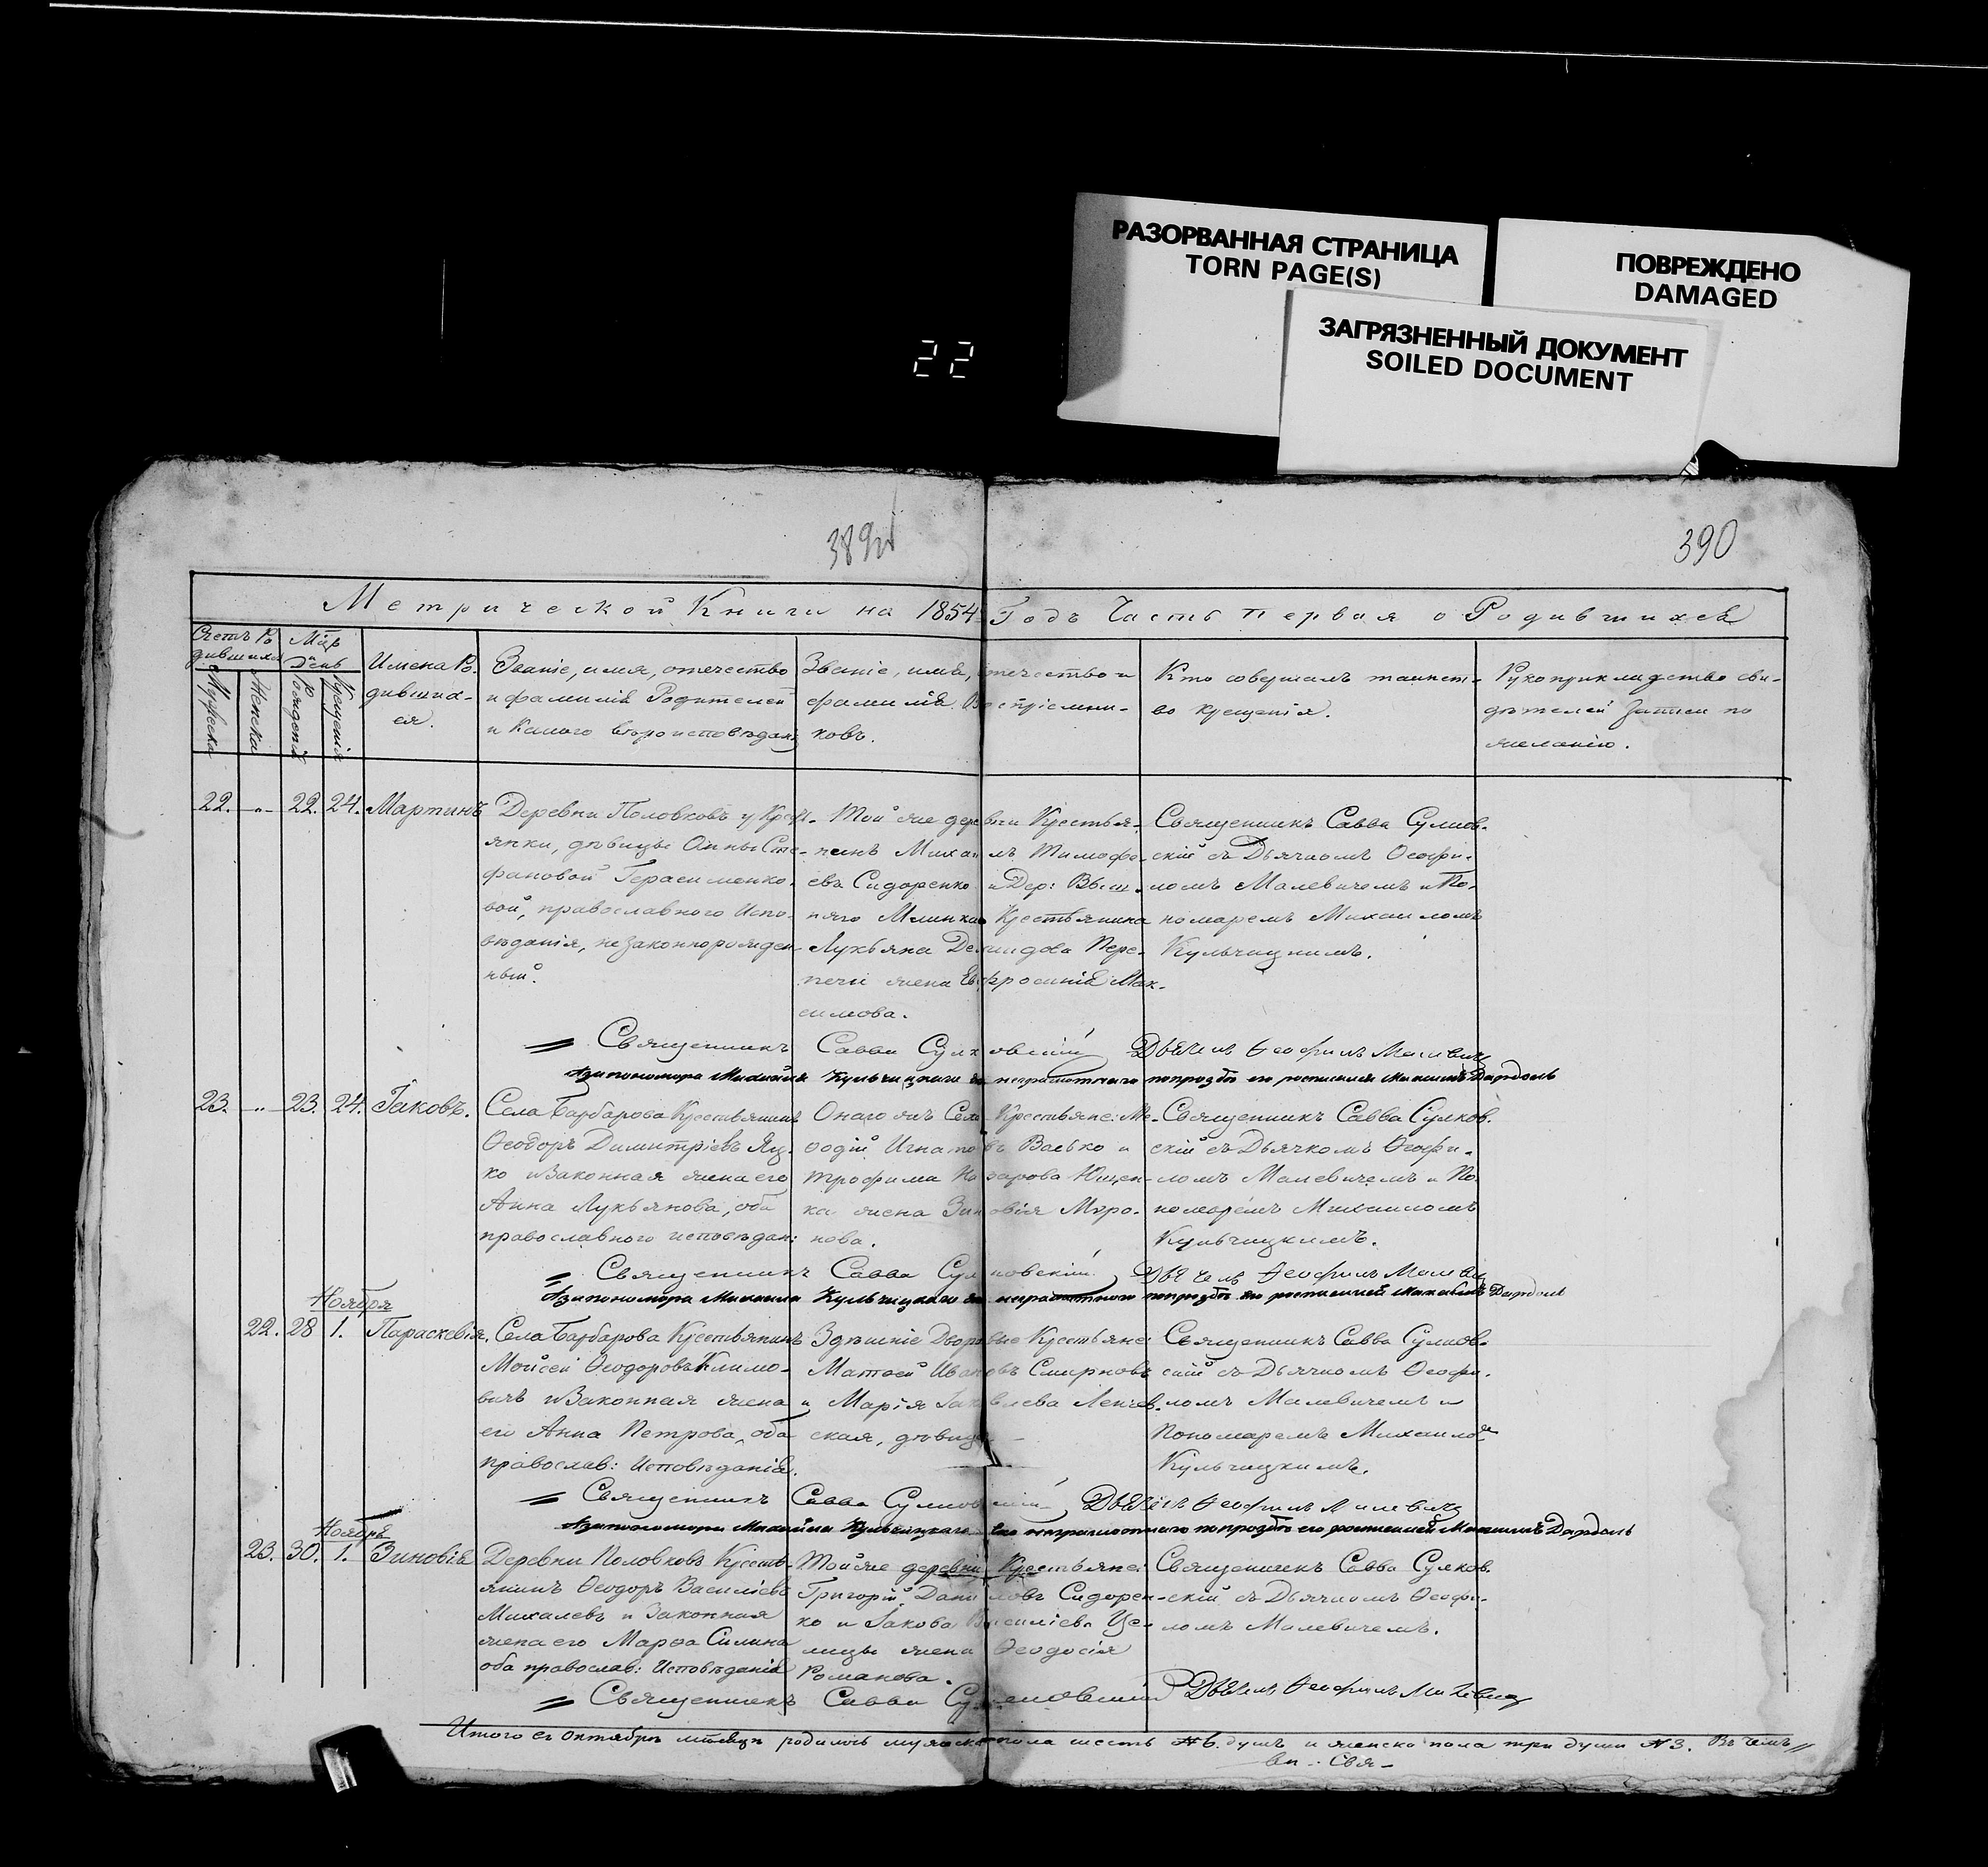 РАЗОРВАННАЯ СТРАНИЦА
TORN PAGE(S)
ПОВРЕЖДЕНО
DAMAGED
ЗАГРЯЗНЕННЫЙ ДОКУМЕНТ
SOILED DOCUMENT
22
390
Метрической Книги на 1854 Годъ Часть первая о Родившихся
Счетъ Ро
дившихся
Мужеска
Женска
День
Рожденія
Крещенія
Имена Ро-
дивших-
ся.
Званіе, имя, отечество
и фамилія Родителей
и Какого вѣроисповѣдан
Званіе, имя, отечество и
фамилія Воспріемни-
ковъ.
Кто совершалъ таинст-
во крещенія.
Рукоприкладство сви-
дѣтелей Записи по
желанію.
22. -"- 22. 24. Мартинъ
Деревни Половковъ у Крест-
янки, дѣвицы Анны Сте-
фановой Герасименко-
вой, православного Испо-
вѣданія, незаконорожден-
ный.
Той же деревни Крестья-
нинъ Михаилъ Тимофе-
евъ Сидоренко и Дер: Выш-
няго Млинка Крестьянина
Лукьяна Демидова Пере-
печи жена Евфросинія Мак-
симова.
Священникъ Савва Сулков-
скій съ Дьячкомъ Ѳеофи-
ломъ Малевичемъ и По-
номаремъ Михаиломъ
Кульчицкимъ.
Священникъ Савва Сулковскій Дьячекъ Ѳеофилъ Малевичъ
Азапономора Михайла Кульчицкаго неграмотнаго попрозбѣ его росписался Максимъ Дардаль
23. -"- 23. 24. Іаковъ.
Села Барбарова Крестьянинъ
Ѳеодоръ Димитріевъ Яц-
ко и Законная жена его
Анна Лукьянова, оба
православного исповѣдан:
Онаго же Села Крестьяне: Ме-
ѳодій Игнатовъ Васько и
Трофима Назарова Ющен-
ка жена Зиновія Миро-
нова.
Священникъ Савва Сулков-
скій съ Дьячкомъ Ѳеофи-
ломъ Малевичемъ и По-
номаремъ Михаиломъ
Кульчицкимъ.
Священникъ Савва Сулковскій Дьячекъ Ѳеофилъ Малевичъ
Азапономора Михаила Кульчицкаго неграмотного попрозбѣ его росписался Максимъ Дардаль
Ноября
22. 28 1. Параскевія.
Села Барбарова Крестьянинъ
Мойсей Ѳеодоровъ Климо-
вичъ и Законная жена
его Анна Петрова, оба
православ: Исповѣданія.
Здѣшніе Дворовые Крестьяне:
Матѳей Ивановъ Смирновъ
и Марія Іаковлева Ленчев-
ская, дѣвица
Священникъ Савва Сулков-
скій съ Дьячкомъ Ѳеофи-
ломъ Малевичемъ и
Пономаремъ Михаиломъ
Кульчицкимъ.
Священникъ Савва Сулковскій Дьячекъ Ѳеофилъ Малевичъ
Азапономора Михайла Кульчицкаго неграмотнаго попрозбѣ его росписался Максимъ Дардаль
Ноября
23. 30. 1. Зиновія
Деревни Половковъ Кресть-
янинъ Ѳеодоръ Василіевъ
Михалевъ и Законная
жена его Марѳа Силина
оба православ: Исповѣданія
Той же деревни Крестьяне:
Григорій Даниловъ Сидорен-
ко и Іакова Василіева Це-
лицы жена Ѳеодосія
Романова.
Священникъ Савва Сулков-
скій съ Дьячкомъ Ѳеофи-
ломъ Малевичемъ.
Священникъ Савва Сулковскій Дьячекъ Ѳеофилъ Малевичъ
Итого въ Октябрѣ мѣсяцѣ родилось мужеска пола шесть №6. душъ и женска пола три души №3. Въ чемъ